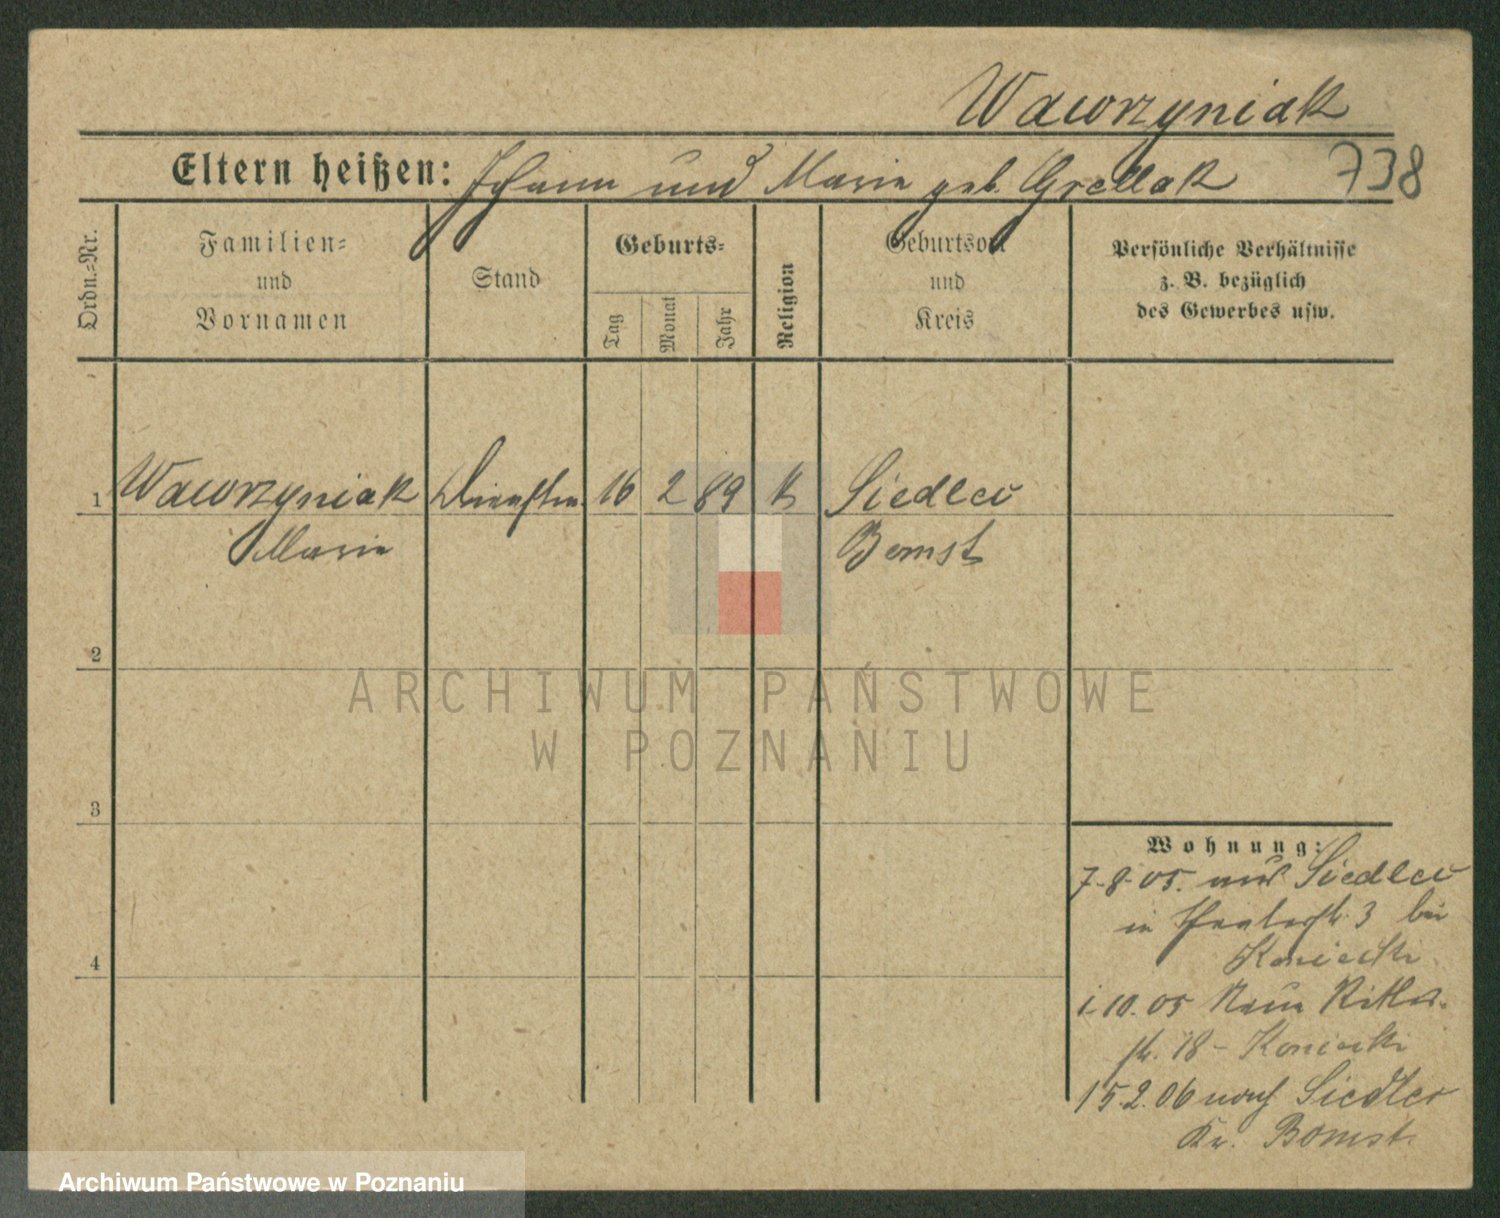 Wawrzyniak
Eltern heißen: Johann und Marie geb. Grellak 738
Ordn.=Nr.
Familien=
und
Vornamen
Stand
Geburts=
Tag
Monat
Jahr
Religion
Geburtsort
und
Kreis
Persönliche Verhältnisse
z. B. bezüglich
des Gewerbes usw.
1 Wawrzyniak Dienstm. 16 2 89 k Siedlec
Marie Bomst
2
3
4
Wohnung:
7-8-05. aus Siedlec
in 3 bei
Koniecki
1-10.05 Neue Ritter-
str. 18 - Koniecki
15.2.06 nach Siedlec
Kr. Bomst.
ARCHIWUM PAŃSTWOWE
W POZNANIU
Archiwum Państwowe w Poznaniu